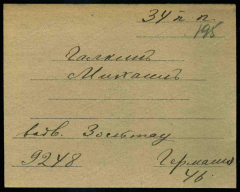 34 п. п.
195
Галкинъ
Михаилъ
Зольтау
9248 Германия
46.